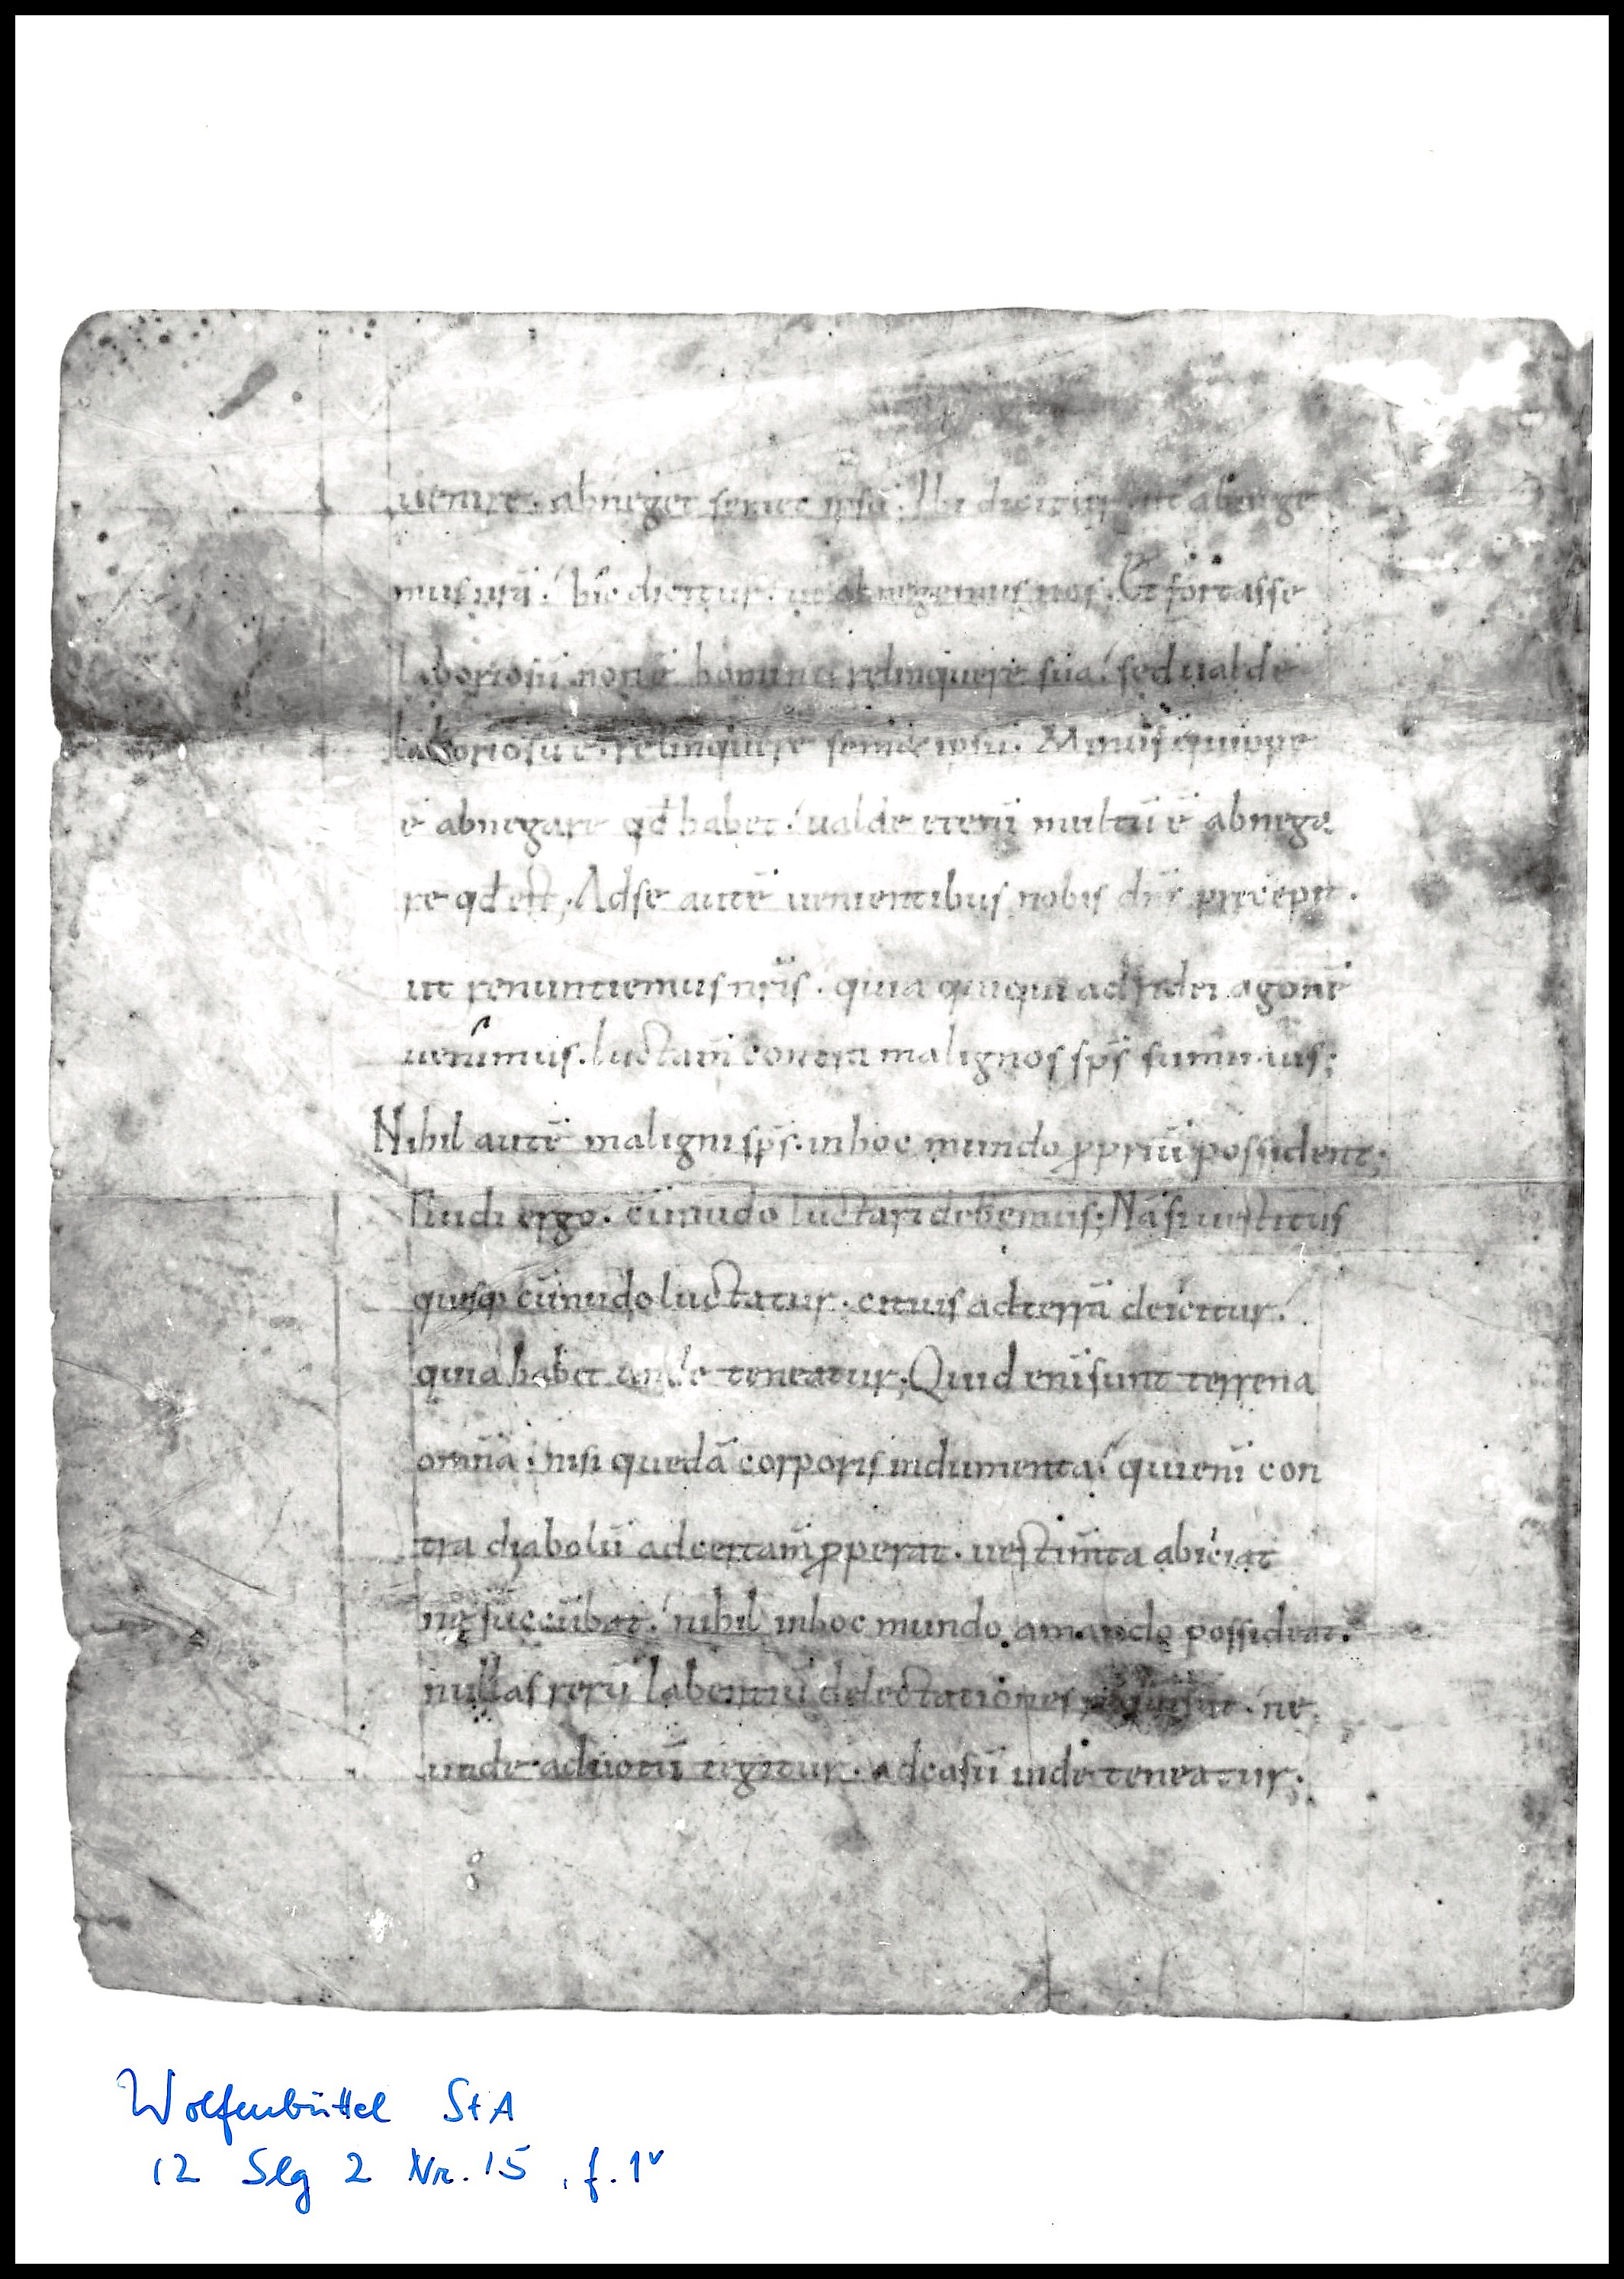 uenire. abneget semet ipsū. Ibi dicitur ut abnege
mus nr̄a. hic dicitur. ut abnegemus nos. Et fortasse
laboriosū non ē homini relinquere sua. sed ualde
laboriosū ē. relinquere semet ipsū. Minus quippe
ē abnegare qđ habet. ualde etenī multū ē abnega
re qđ est; Adse autē uenientibus nobis dn̄s precepit.
ut renuntiemus nr̄is. quia quiqui ad fidei agonē
uenimus. luctam̄ contra malignos sp̄s sumimus;
Nihil autē maligni sp̄s. in hoc mundo ꝓpriū possident;
Nudi ergo. cū nudo luctari debemus; Nā si uestitus
quisq; cū nudo luctatur. citius ad terrā deicitur.
quia habet unde teneatur; Quid enī sunt terrena
omn̄ia. nisi quedā corporis indumenta. qui enī con
tra diabolū ad certam̄ ꝓperat. uestim̄ta abiciat
ne succūbat. nihil in hoc mundo amando possideat.
nullas rerū labentiū delectationes ne
unde ad uotū tegitur. ad casū inde teneatur;
Wolfenbüttel StA
12 Slg 2 Nr. 15, f. 1v